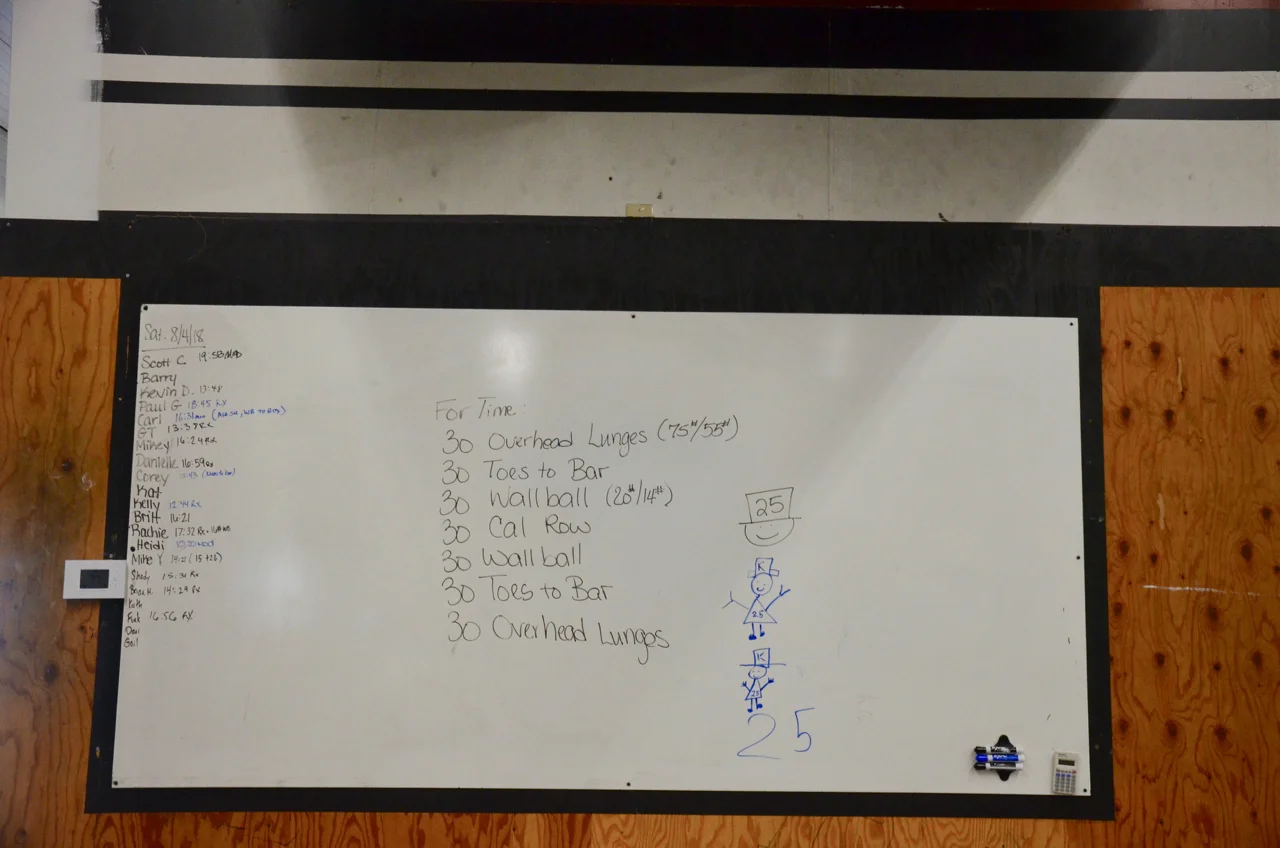 Sat. 8/4/18
Scott C 19:53
Barry
Kevin D. 17:48
Paul G 18:45 Rx
Carl
GT 13:37 Rx
Mikey 14:24 Rx
Danielle 16:59 Rx
Corey
Kat
Kelly 12:44 Rx
Britt 16:21
Rachie 17:32 Rx
Heidi
Mike Y 14:21 (15 +25)
Shady 15:31 Rx
14:29 Rx
16:56 RX
Gail
For Time:
30 Overhead Lunges (75#/55#)
30 Toes to Bar
30 Wallball (20#/14#)
30 Cal Row
30 Wallball
30 Toes to Bar
30 Overhead Lunges
25
K
25
K
25
25